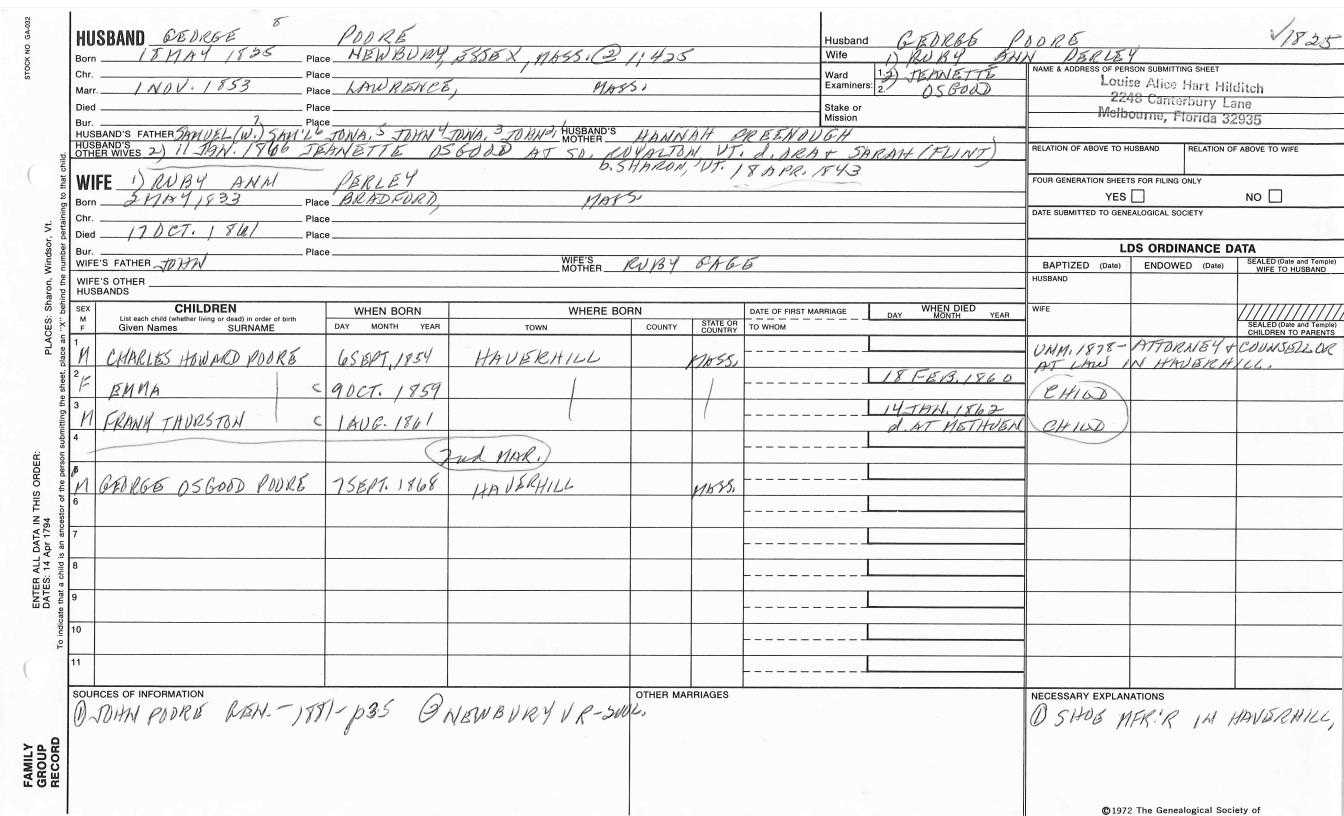 STOCK NO. GA-032
PLACES: Sharon, Windsor, Vt.
ENTER ALL DATA IN THIS ORDER:
DATES: 14 Apr 1794
To indicate that a child is an ancestor of the person submitting the sheet, place an "X" behind the number pertaining to that child.
FAMILY GROUP RECORD
HUSBAND GEORGE 8 POORE
Born 18 MAY 1825 Place NEWBURY, ESSEX, MASS. ② 1:425
Chr. Place
Marr. 1 NOV. 1853 Place LAWRENCE, MASS.
Died Place
Bur. Place
HUSBAND'S FATHER SAMUEL (W.) 7 SAM'L 6 JONA. 5 JOHN 4 JONA. 3 JOHN 2,1 HUSBAND'S MOTHER HANNAH GREENOUGH
HUSBAND'S OTHER WIVES 2) 11 JAN. 1866 JEANETTE OSGOOD AT SO. ROYALTON VT. d. ORA & SARAH (FLINT)
b. SHARON, VT. 18 APR. 1843
WIFE 1) RUBY ANN PERLEY
Born 2 MAY 1833 Place BRADFORD, MASS.
Chr. Place
Died 17 OCT. 1861 Place
Bur. Place
WIFE'S FATHER JOHN WIFE'S MOTHER RUBY GAGE
WIFE'S OTHER HUSBANDS
Husband GEORGE POORE √1825
Wife 1) RUBY ANN PERLEY
Ward Examiners: 1. 2) JEANETTE
2. OSGOOD
Stake or Mission
NAME & ADDRESS OF PERSON SUBMITTING SHEET
Louise Alice Hart Hilditch
2248 Canterbury Lane
Melbourne, Florida 32935
RELATION OF ABOVE TO HUSBAND RELATION OF ABOVE TO WIFE
FOUR GENERATION SHEETS FOR FILING ONLY
YES NO
DATE SUBMITTED TO GENEALOGICAL SOCIETY
LDS ORDINANCE DATA
BAPTIZED (Date) ENDOWED (Date) SEALED (Date and Temple) WIFE TO HUSBAND
HUSBAND
WIFE
SEALED (Date and Temple) CHILDREN TO PARENTS
SEX M F CHILDREN WHEN BORN WHERE BORN DATE OF FIRST MARRIAGE WHEN DIED
List each child (whether living or dead) in order of birth
Given Names SURNAME DAY MONTH YEAR TOWN COUNTY STATE OR COUNTRY TO WHOM DAY MONTH YEAR
1 M CHARLES HOWARD POORE 6 SEPT. 1854 HAVERHILL MASS. UNM. 1878 - ATTORNEY & COUNSELLOR
AT LAW IN HAVERHILL.
2 F EMMA | c 9 OCT. 1859 | | 18 FEB. 1860 CHILD
3 M FRANK THURSTON | c 1 AUG. 1861 14 JAN. 1862
d. AT METHUEN CHILD
4 2nd MAR.
5 M GEORGE OSGOOD POORE 7 SEPT. 1868 HAVERHILL MASS.
6
7
8
9
10
11
SOURCES OF INFORMATION
① JOHN POORE GEN. - 1881 - p35 ② NEWBURY VR -
OTHER MARRIAGES
NECESSARY EXPLANATIONS
① SHOE MFR'R IN HAVERHILL,
©1972 The Genealogical Society of